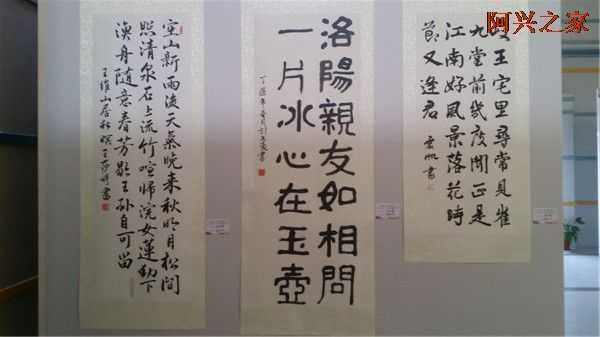 阿兴之家
空山新雨後天氣晚来秋明月松間
照清泉石上流竹喧歸浣女蓮動下
漁舟隨意春芳歇王孫自可留
王維山居秋暝
洛陽親友如相問
一片冰心在玉壺
王宅里尋常見崔
九堂前幾度聞正是
江南好風景落花時
節又逢君